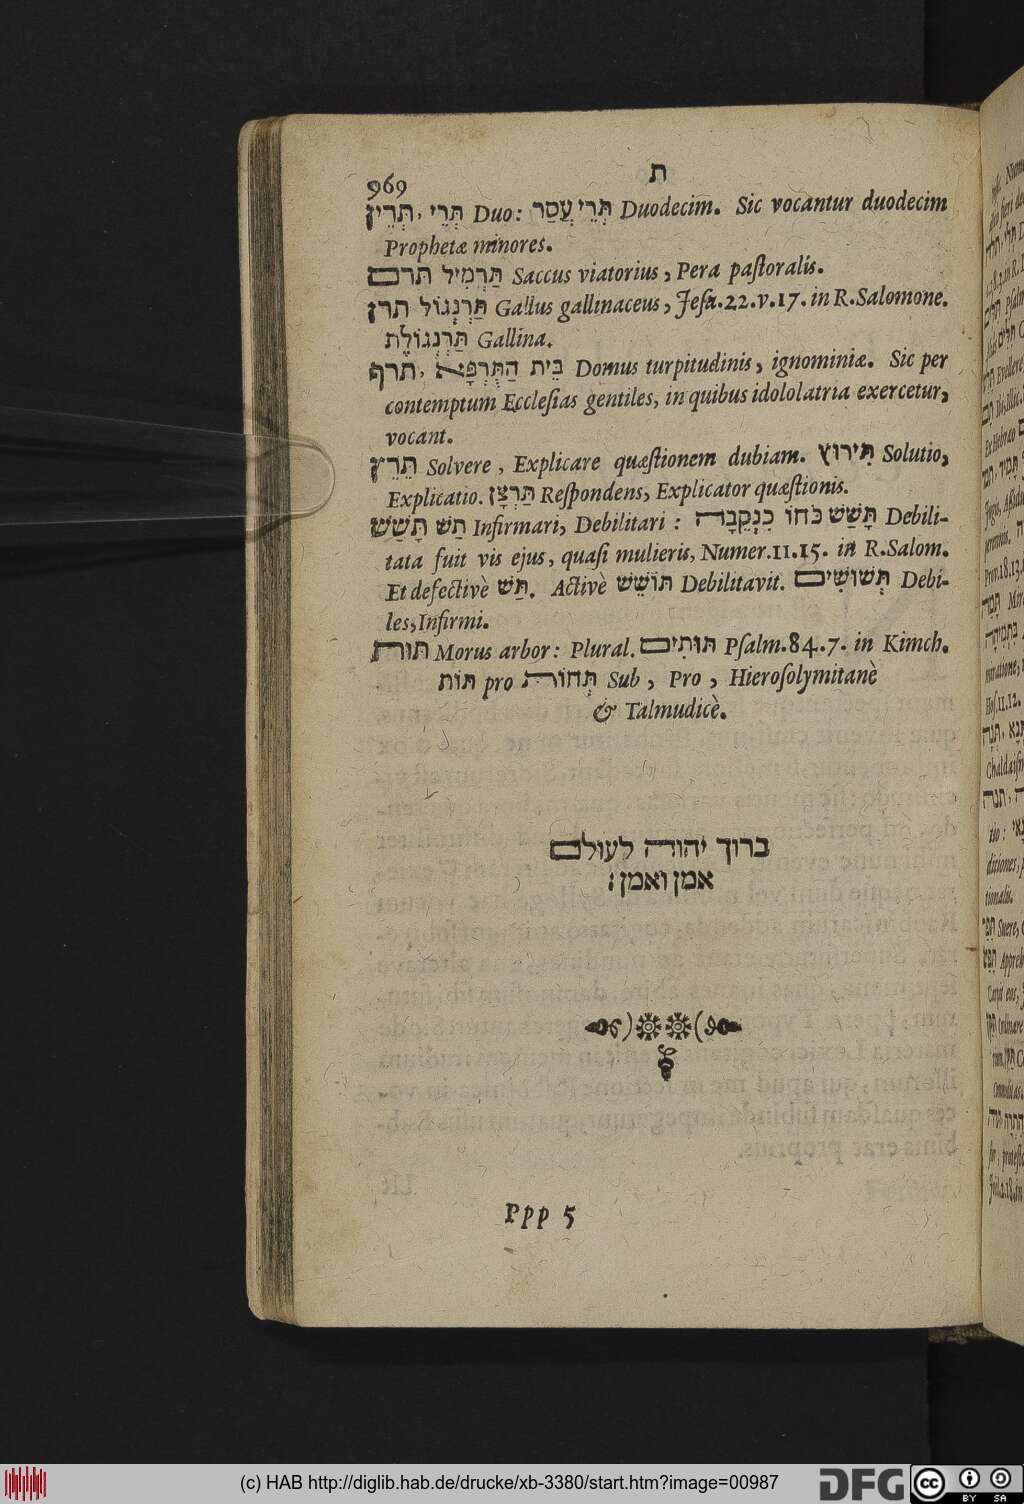 ת
969
תְּרֵי, תְּרֵין Duo: תְּרֵי עֲסַר Duodecim. Sic vocantur duodecim
Prophetæ minores.
תרם תַּרְמִיל Saccus viatorius, Pera paſtoralis.
תרן תַּרְנְגוֹל Gallus gallinaceus, Jeſa.22.v.17. in R.Salomone.
תַּרְנְגוֹלֶת Gallina.
תרף, בֵּית הַתְּרְפָּא Domus turpitudinis, ignominiæ. Sic per
contemptum Eccleſias gentiles, in quibus idololatria exercetur,
vocant.
תֵּרֵץ Solvere, Explicare quæſtionem dubiam. תִּירוּץ Solutio,
Explicatio. תַּרְצָן Reſpondens, Explicator quæſtionis.
תַּשׁ תָּשַׁשׁ Infirmari, Debilitari: תָּשַׁשׁ כֹּחוֹ כִּנְקֵבָה Debili-
tata fuit vis ejus, quaſi mulieris, Numer.11.15. in R.Salom.
Et defectivè תַּשׁ. Activè תּוֹשֵׁשׁ Debilitavit. תְּשׁוּשִׁים Debi-
les, Infirmi.
תּוּת Morus arbor: Plural. תּוּתִים Pſalm.84.7. in Kimch.
תּוֹת pro תְּחוֹת Sub, Pro, Hieroſolymitanè
& Talmudicè.
ברוך יהוה לעולם
אמן ואמן:
Ppp 5
(c) HAB http://diglib.hab.de/drucke/xb-3380/start.htm?image=00987
DFG
cc
BY SA